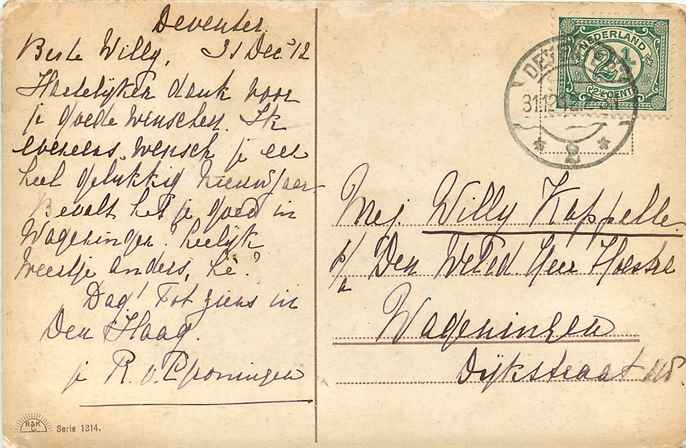 Deventer
Beste Willy, 31 Dec '12
Hartelijken dank voor
je goede wenschen. Ik
eveneens wensch je een
heel gelukkig nieuwjaar
Bevalt het je goed in
Wageningen? heelijk
feestje anders, hè?
Dag! Tot ziens in
Den Haag.
je R. v.
R&K
Serie 1314.
NEDERLAND
2½
2½ CENT
DEVENTER
31.12.12
2
Mej. Willy Kappelle.
p/a Den WelEd Heer
Wageningen
Dijkstraat